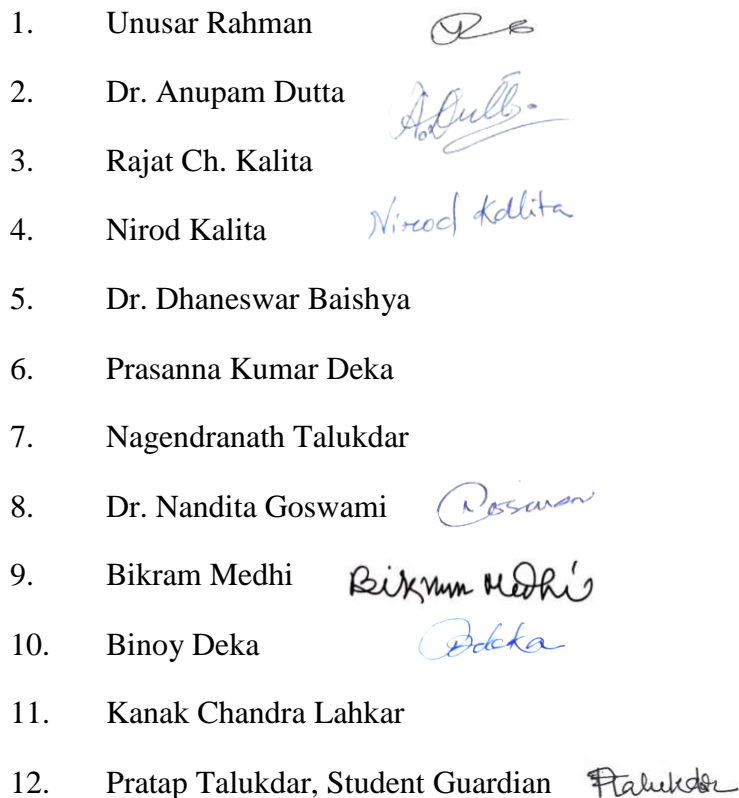 1. Unusar Rahman
2. Dr. Anupam Dutta A. Dutta.
3. Rajat Ch. Kalita
4. Nirod Kalita Nirod Kalita
5. Dr. Dhaneswar Baishya
6. Prasanna Kumar Deka
7. Nagendranath Talukdar
8. Dr. Nandita Goswami
9. Bikram Medhi Bikram Medhi
10. Binoy Deka Bdeka
11. Kanak Chandra Lahkar
12. Pratap Talukdar, Student Guardian PTalukdar